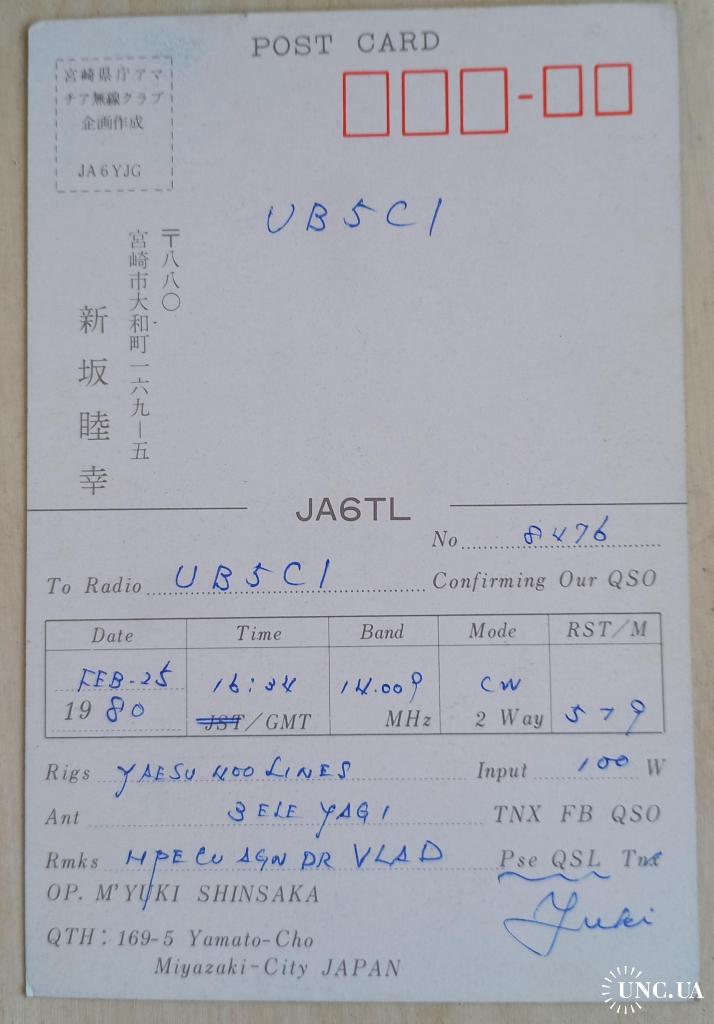 POST CARD
宮崎県庁アマ
チア無線クラブ
企画作成
JA6YJG
UB5CI
〒八八〇
宮崎市大和町一六九ー五
新坂睦幸
JA6TL
No 8476
To Radio UB5CI Confirming Our QSO
Date Time Band Mode RST/M
FEB-25 16:34 14.009 CW
1980 JST/GMT MHz 2 Way 579
Rigs YAESU 400 LINES Input 100 W
Ant 3 ELE YAGI TNX FB QSO
Rmks HPE CU AGN DR VLAD Pse QSL Tnx
OP. M'YUKI SHINSAKA
Yuki
QTH: 169-5 Yamato-Cho
Miyazaki-City JAPAN
UNC.UA